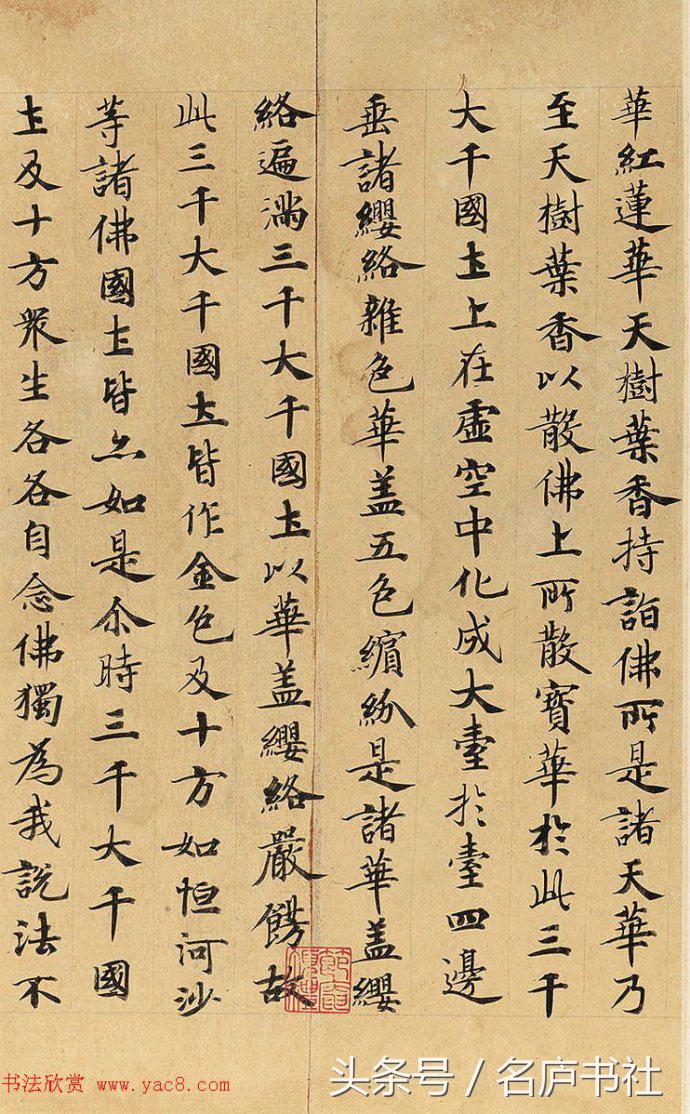 華紅蓮華天樹葉香持詣佛所是諸天華乃
至天樹葉香以散佛上所散寶華於此三千
大千國土上在虛空中化成大臺於臺四邊
垂諸纓絡雜色華盖五色繽紛是諸華盖纓
絡遍滿三千大千國土以華盖纓絡嚴餝故
此三千大千國土皆作金色及十方如恒河沙
等諸佛國土皆亦如是尒時三千大千國
土及十方衆生各各自念佛獨為我說法不
书法欣赏 www.yac8.com
头条号 / 名庐书社